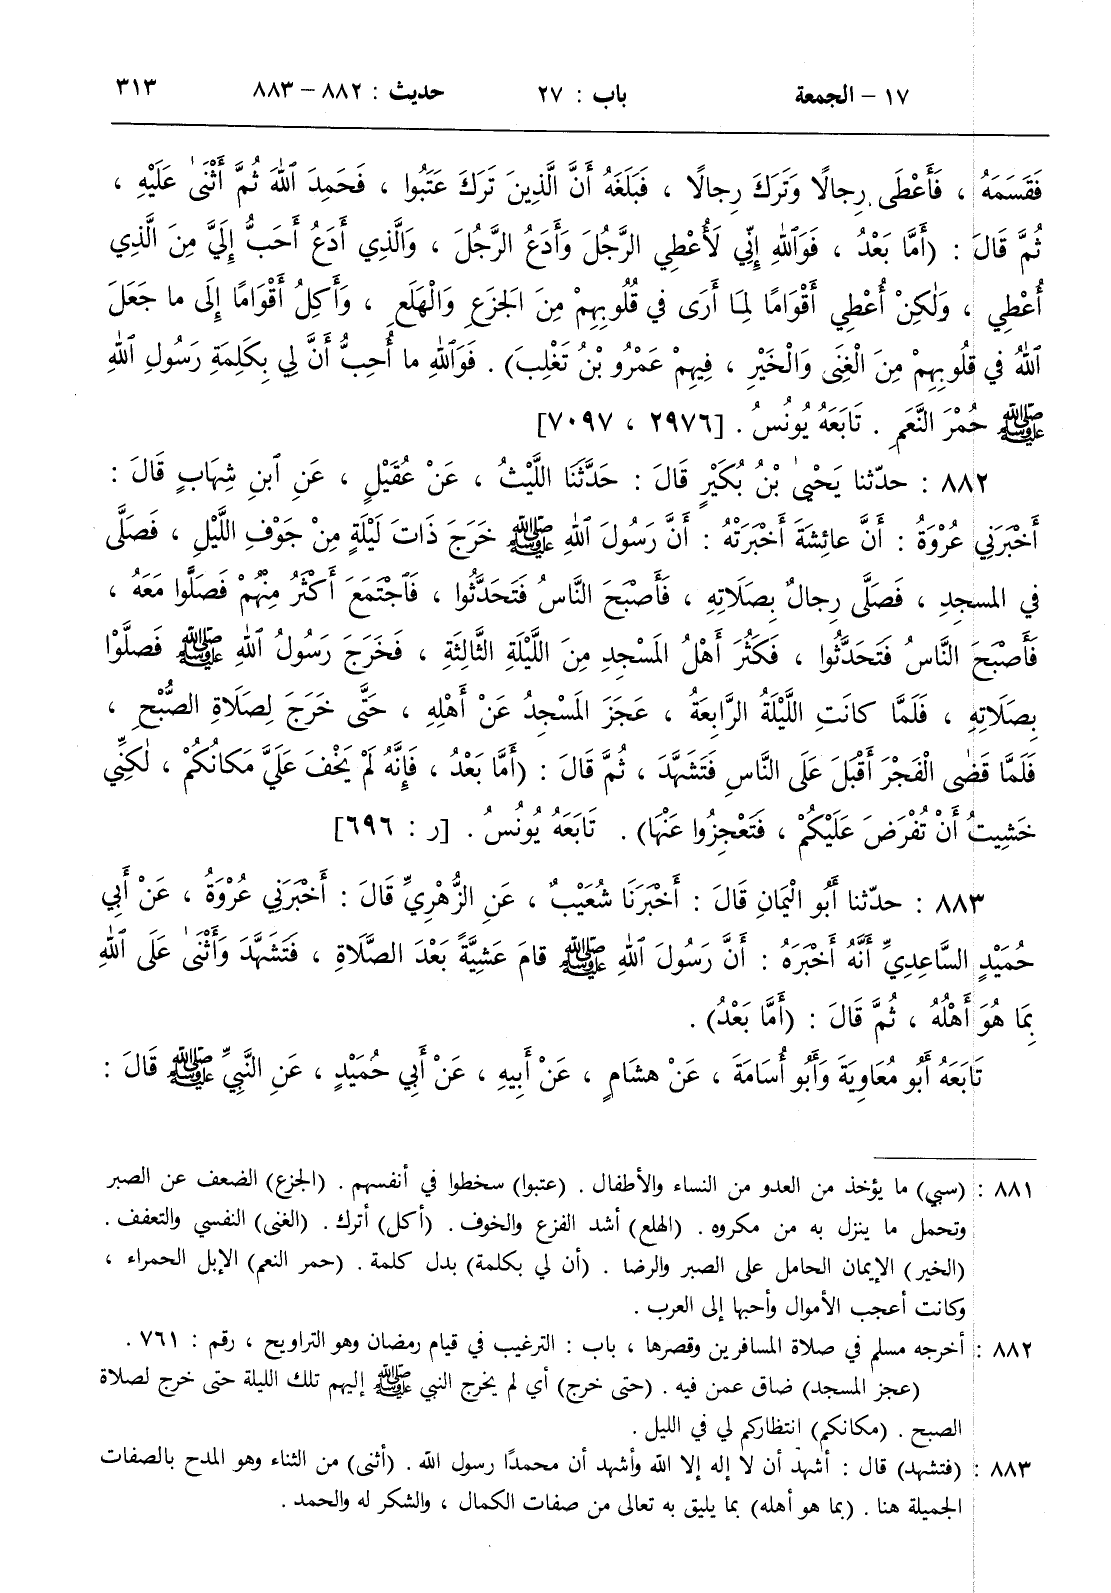 ١٧ – الجمعة باب : ٢٧ حديث : ٨٨٢ – ٨٨٣ ٣١٣
فَقَسَمَهُ ، فَأَعْطَى رِجالًا وَتَرَكَ رِجالًا ، فَبَلَغَهُ أَنَّ الَّذِينَ تَرَكَ عَتَبُوا ، فَحَمِدَ ٱللهَ ثُمَّ أَثْنىٰ عَلَيْهِ ،
ثُمَّ قَالَ : (أَمَّا بَعْدُ ، فَوَٱللهِ إِنِّي لَأُعْطِي الرَّجُلَ وَأَدَعُ الرَّجُلَ ، وَالَّذِي أَدَعُ أَحَبُّ إِلَيَّ مِنَ الَّذِي
أُعْطِي ، وَلٰكِنْ أُعْطِي أَقْوَامًا لِمَا أَرَى فِي قُلُوبِهِمْ مِنَ الجَزَعِ وَالْهَلَعِ ، وَأَكِلُ أَقْوَامًا إِلَى ما جَعَلَ
ٱللهُ فِي قُلُوبِهِمْ مِنَ الْغِنَى وَالْخَيْرِ ، فِيهِمْ عَمْرُو بْنُ تَغْلِبَ) . فَوَٱللهِ ما أُحِبُّ أَنَّ لِي بِكَلِمَةِ رَسُولِ ٱللهِ
ﷺ حُمْرَ النَّعَمِ . تَابَعَهُ يُونُسُ . [٢٩٧٦ ، ٧٠٩٧]
٨٨٢ : حدّثنا يَحْيىٰ بْنُ بُكَيْرٍ قَالَ : حَدَّثَنَا اللَّيْثُ ، عَنْ عُقَيْلٍ ، عَنِ ٱبنِ شِهَابٍ قَالَ :
أَخْبَرَنِي عُرْوَةُ : أَنَّ عائِشَةَ أَخْبَرَتْهُ : أَنَّ رَسُولَ ٱللهِ ﷺ خَرَجَ ذَاتَ لَيْلَةٍ مِنْ جَوْفِ اللَّيْلِ ، فَصَلَّى
في المسجِدِ ، فَصَلَّى رِجالٌ بِصَلَاتِهِ ، فَأَصْبَحَ النَّاسُ فَتَحَدَّثُوا ، فَٱجْتَمَعَ أَكْثَرُ مِنْهُمْ فَصَلَّوا مَعَهُ ،
فَأَصْبَحَ النَّاسُ فَتَحَدَّثُوا ، فَكَثُرَ أَهْلُ المَسْجِدِ مِنَ اللَّيْلَةِ الثَّالِثَةِ ، فَخَرَجَ رَسُولُ ٱللهِ ﷺ فَصلَّوْا
بِصَلَاتِهِ ، فَلَمَّا كانَتِ اللَّيْلَةُ الرَّابِعَةُ ، عَجَزَ المَسْجِدُ عَنْ أَهْلِهِ ، حَتَّى خَرَجَ لِصَلَاةِ الصُّبْحِ ،
فَلَمَّا قَضٰى الْفَجْرَ أَقْبَلَ عَلَى النَّاسِ فَتَشَهَّدَ ، ثُمَّ قَالَ : (أَمَّا بَعْدُ ، فَإِنَّهُ لَمْ يَخْفَ عَلَيَّ مَكانُكُمْ ، لٰكِنِّي
خَشِيتُ أَنْ تُفْرَضَ عَلَيْكُمْ ، فَتَعْجِزُوا عَنْهَا) . تَابَعَهُ يُونُسُ . [ر : ٦٩٦]
٨٨٣ : حدّثنا أَبُو الْيَمَانِ قَالَ : أَخْبَرَنَا شُعَيْبٌ ، عَنِ الزُّهْرِيِّ قَالَ : أَخْبَرَنِي عُرْوَةُ ، عَنْ أَبِي
حُمَيْدٍ السَّاعِدِيِّ أَنَّهُ أَخْبَرَهُ : أَنَّ رَسُولَ ٱللهِ ﷺ قامَ عَشِيَّةً بَعْدَ الصَّلَاةِ ، فَتَشَهَّدَ وَأَثْنىٰ عَلَى ٱللهِ
بِمَا هُوَ أَهْلُهُ ، ثُمَّ قَالَ : (أَمَّا بَعْدُ) .
تَابَعَهُ أَبُو مُعَاوِيَةَ وَأَبُو أُسَامَةَ ، عَنْ هشَامٍ ، عَنْ أَبِيهِ ، عَنْ أَبِي حُمَيْدٍ ، عَنِ النَّبِيِّ ﷺ قَالَ :
٨٨١ : (سبي) ما يؤخذ من العدو من النساء والأطفال . (عتبوا) سخطوا في أنفسهم . (الجزع) الضعف عن الصبر
وتحمل ما ينزل به من مكروه . (الهلع) أشد الفزع والخوف . (أكل) أترك . (الغنى) النفسي والتعفف .
(الخير) الإيمان الحامل على الصبر والرضا . (أن لي بكلمة) بدل كلمة . (حمر النعم) الإبل الحمراء ،
وكانت أعجب الأموال وأحبها إلى العرب .
٨٨٢ : أخرجه مسلم في صلاة المسافرين وقصرها ، باب : الترغيب في قيام رمضان وهو التراويح ، رقم : ٧٦١ .
(عجز المسجد) ضاق عمن فيه . (حتى خرج) أي لم يخرج النبي ﷺ إليهم تلك الليلة حتى خرج لصلاة
الصبح . (مكانكم) انتظاركم لي في الليل .
٨٨٣ : (فتشهد) قال : أشهد أن لا إله إلا الله وأشهد أن محمدًا رسول الله . (أثنى) من الثناء وهو المدح بالصفات
الجميلة هنا . (بما هو أهله) بما يليق به تعالى من صفات الكمال ، والشكر له والحمد .